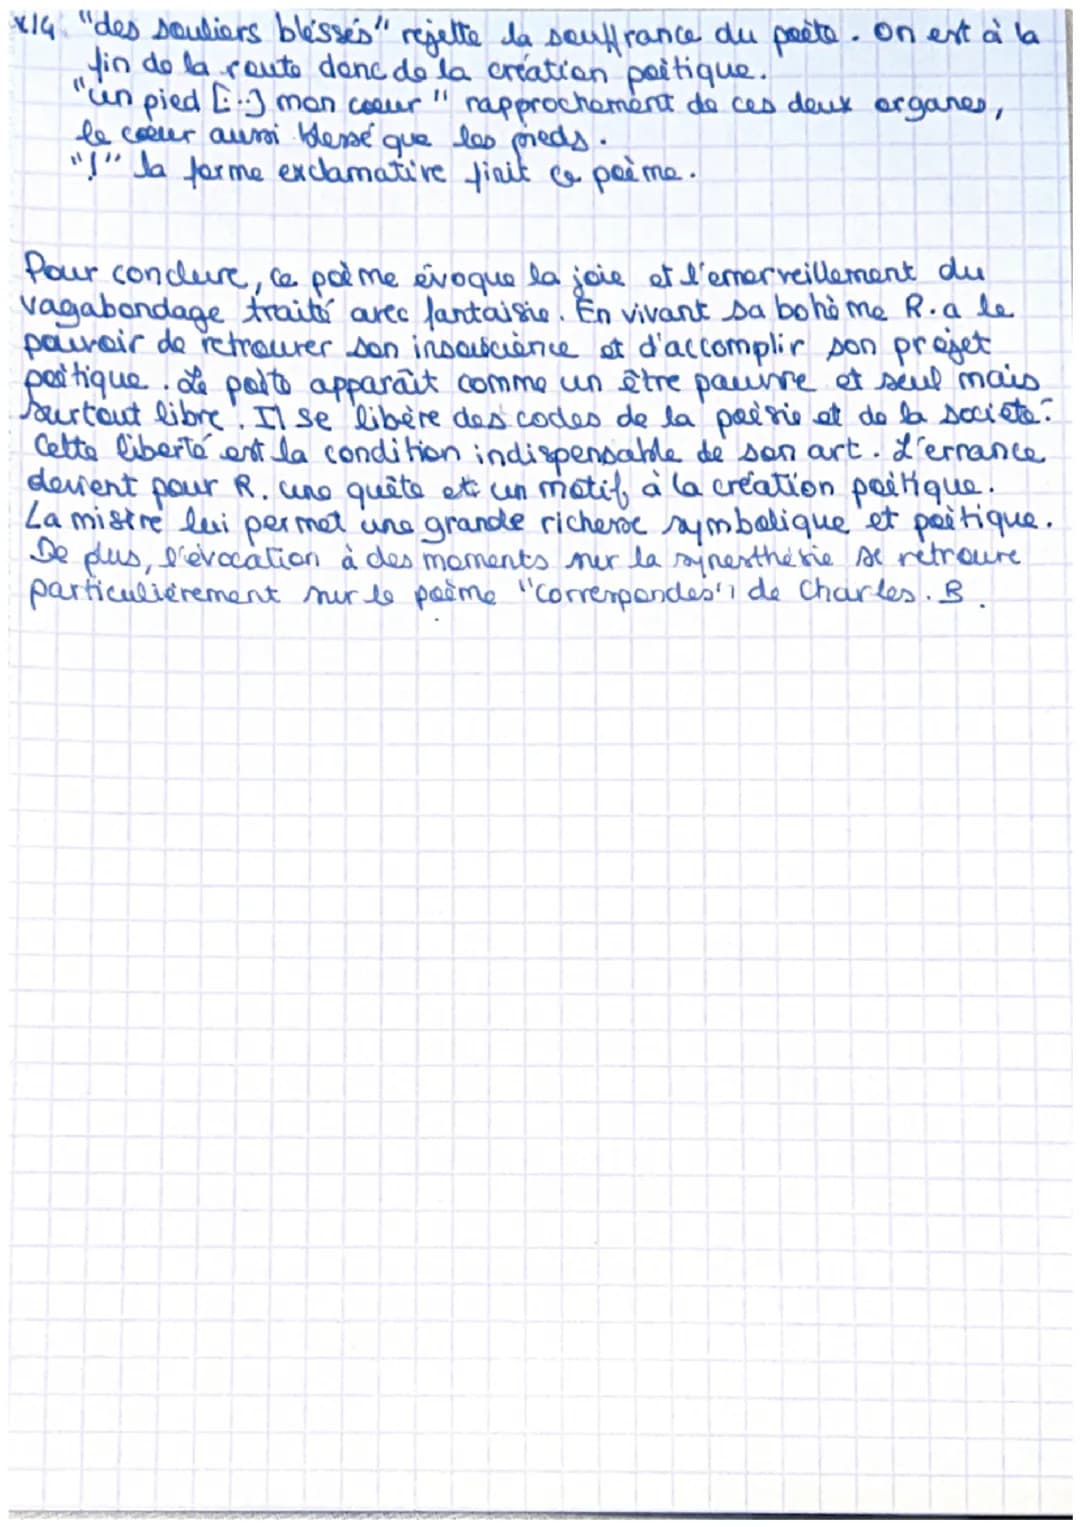 x14. "des souliers bléssés" rejette la souffrance du poète. On est à la
fin de la route donc de la création poétique.
"un pied [...] mon coeur" rapprochement de ces deux organes,
le coeur aussi blessé que les pieds.
"!" la forme exclamative finit ce poème.
Pour conclure, ce poème évoque la joie et l'émerveillement du
vagabondage traité avec fantaisie. En vivant sa bohème R. a le
pouvoir de retrouver son insouscience et d'accomplir son projet
poétique. Le poète apparaît comme un être pauvre et seul mais
surtout libre. Il se libère des codes de la poésie et de la société.
Cette liberté est la condition indispensable de son art. L'errance
devient pour R. une quête et un motif à la création poétique.
La misère lui permet une grande richesse symbolique et poétique.
De plus, l'évocation à des moments sur la synesthésie se retrouve
particulièrement sur le poème "Correspondes" de Charles. B.